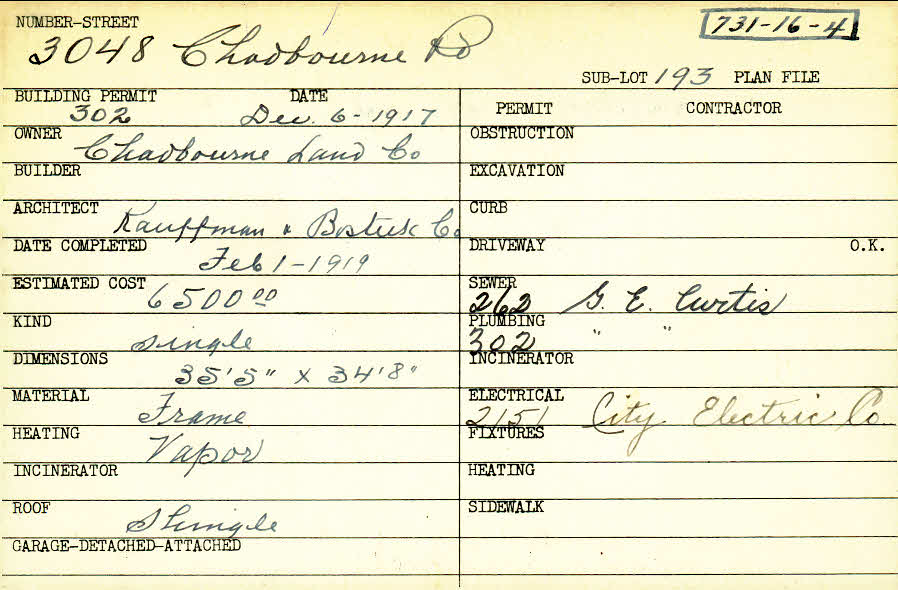 NUMBER-STREET
731-16-4
3048 Chadbourne Rd
SUB-LOT 193 PLAN FILE
BUILDING PERMIT DATE
302 Dec. 6-1917
PERMIT CONTRACTOR
OWNER
Chadbourne Land Co
OBSTRUCTION
BUILDER
EXCAVATION
ARCHITECT
Kauffman & Co
CURB
DATE COMPLETED
Feb 1-1919
DRIVEWAY O.K.
ESTIMATED COST
6500 00
SEWER
262 G. E. Curtis
KIND
single
PLUMBING
302 " "
DIMENSIONS
35'5" x 34'8"
INCINERATOR
MATERIAL
Frame
ELECTRICAL
2151 City Electric Co.
HEATING
Vapor
FIXTURES
INCINERATOR
HEATING
ROOF
Shingle
SIDEWALK
GARAGE-DETACHED-ATTACHED